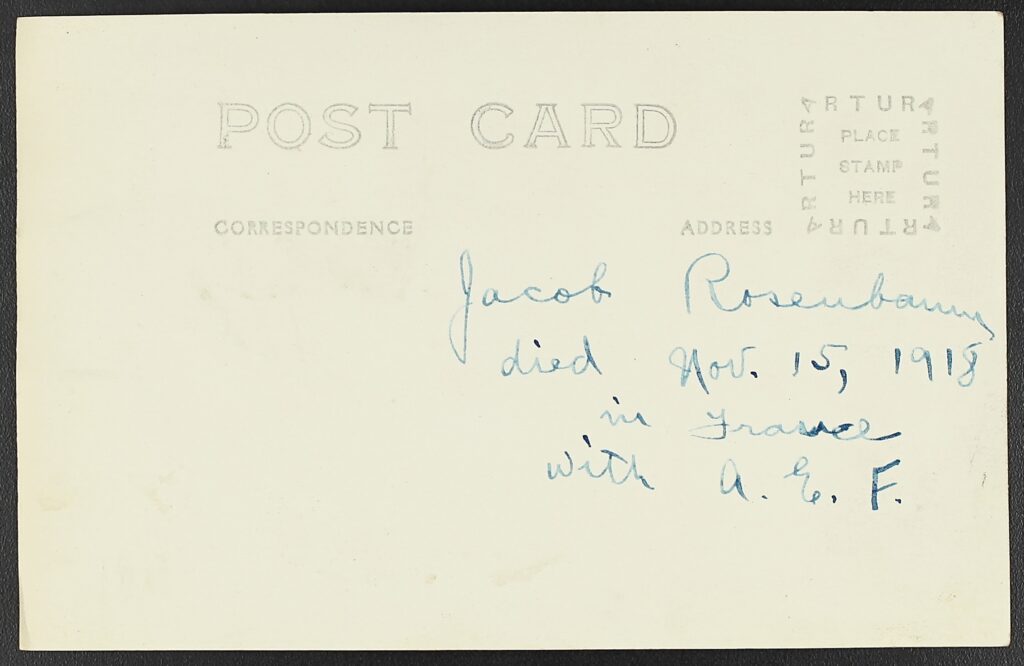 POST CARD
ARTURA
ARTURA
PLACE
STAMP
HERE
ARTURA
ARTURA
CORRESPONDENCE
ADDRESS
Jacob Rosenbaum
died Nov. 15, 1918
in France
with A. E. F.